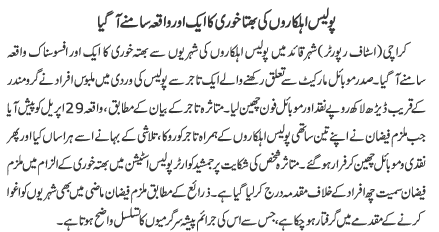 پولیس اہلکاروں کی بھتا خوری کا ایک اور واقعہ سامنے آ گیا
کراچی (اسٹاف رپورٹر) شہر قائد میں پولیس اہلکاروں کی شہریوں سے بھتہ خوری کا ایک اور افسوسناک واقعہ
سامنے آ گیا۔ صدر موبائل مارکیٹ سے تعلق رکھنے والے ایک تاجر سے پولیس کی وردی میں ملبوس افراد نے گرومندر
کے قریب ڈیڑھ لاکھ روپے نقد اور موبائل فون چھین لیا۔ متاثرہ تاجر کے بیان کے مطابق، واقعہ 29 اپریل کو پیش آیا
جب ملزم فیضان نے اپنے تین ساتھی پولیس اہلکاروں کے ہمراہ تاجر کو روکا، تلاشی کے بہانے اسے ہراساں کیا اور پھر
نقدی و موبائل چھین کر فرار ہو گئے۔ متاثرہ شخص کی شکایت پر جمشید کوارٹر پولیس اسٹیشن میں بھتہ خوری کے الزام میں ملزم
فیضان سمیت چھ افراد کے خلاف مقدمہ درج کر لیا گیا ہے۔ ذرائع کے مطابق ملزم فیضان ماضی میں بھی شہریوں کو اغوا
کرنے کے مقدمے میں گرفتار ہو چکا ہے، جس سے اس کی جرائم پیشہ سرگرمیوں کا تسلسل واضح ہوتا ہے۔